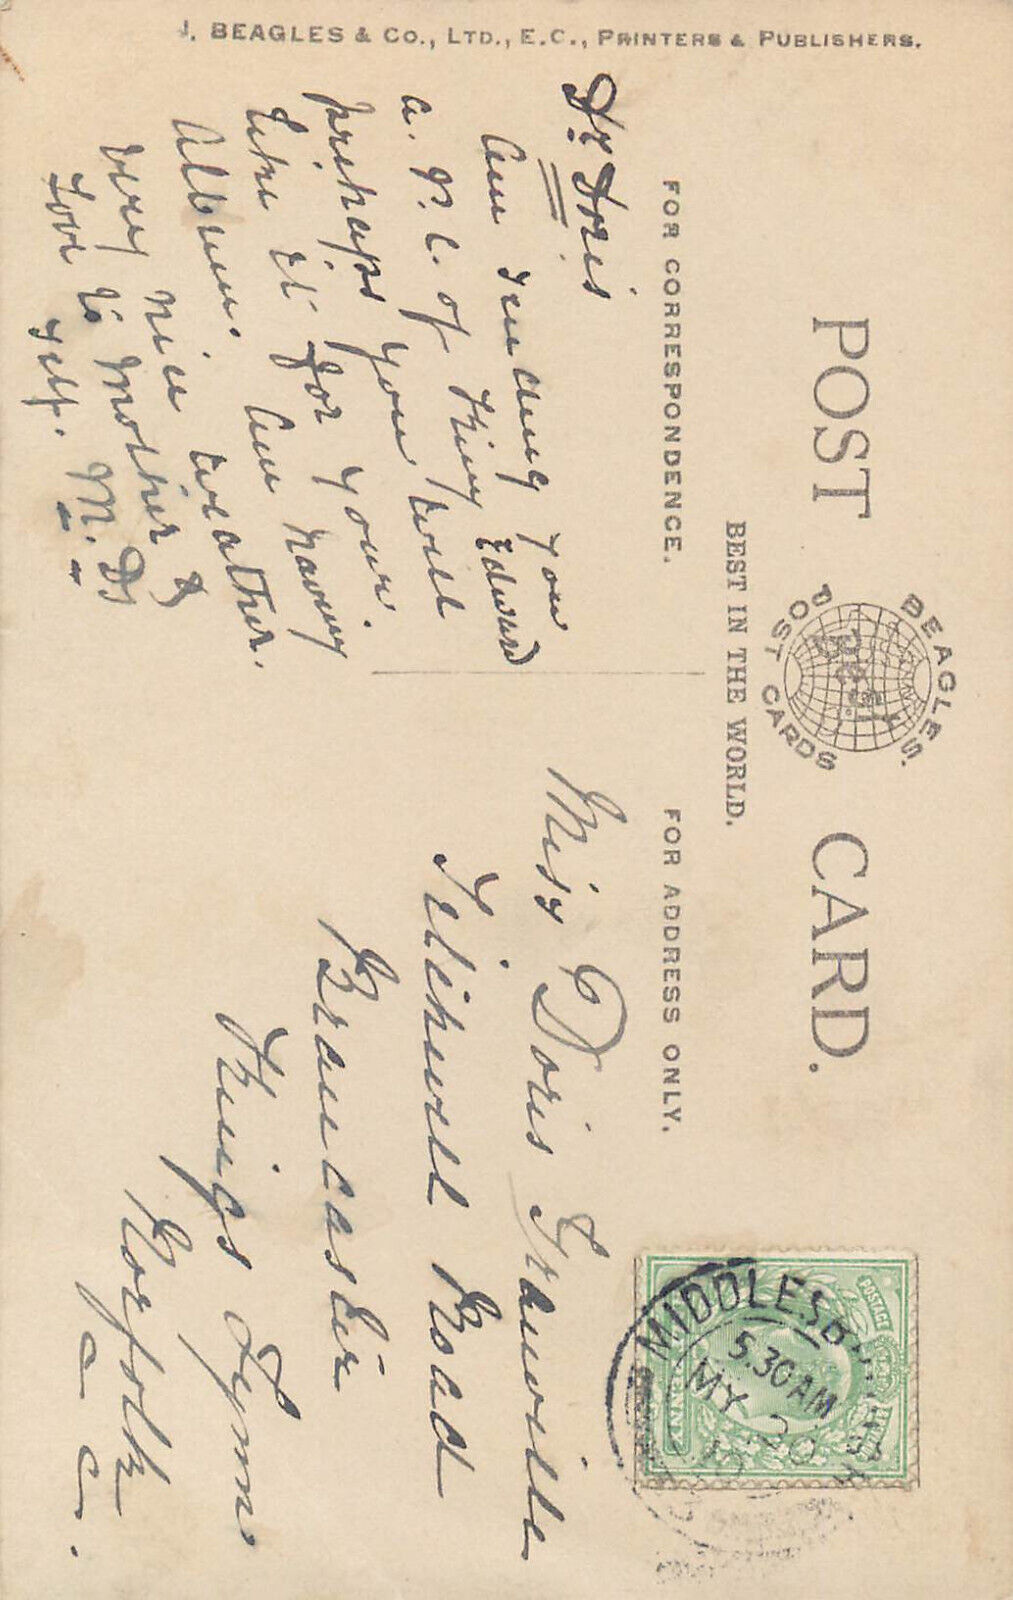 J. BEAGLES & CO., LTD., E.C., PRINTERS & PUBLISHERS.
POST CARD.
BEAGLES'
POST CARDS
BEST
BEST IN THE WORLD.
FOR CORRESPONDENCE.
FOR ADDRESS ONLY.
Dr Doris
Am sending you
a. P. C. of King Edward
prehaps you will
like it for your
Album. Am having
very nice weather.
Love to Mother &
self. M. D.
Miss Doris
Road
Brancaster
Kings Lynn
Norfolk
MIDDLESBROUGH
5.30 AM
MY 20
10
POSTAGE